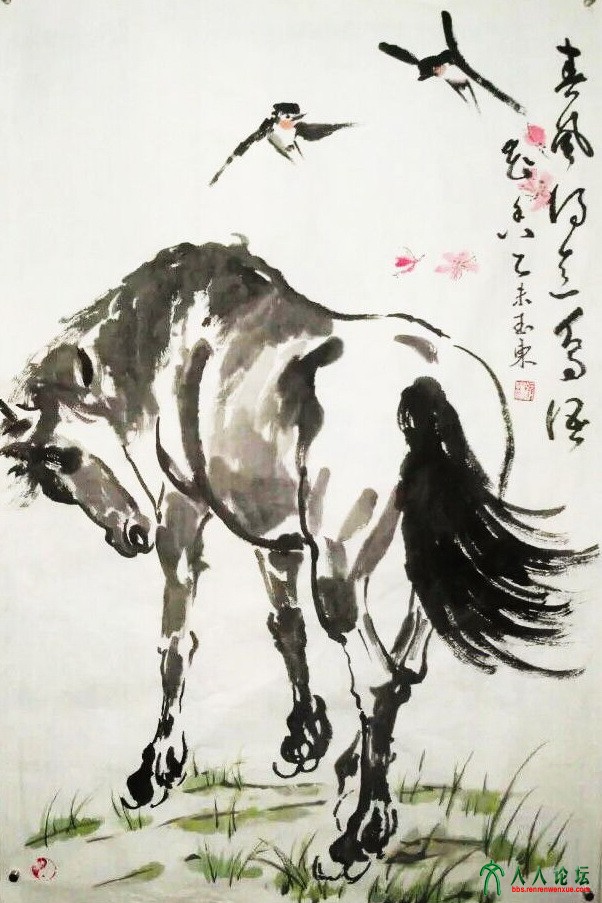 春風得意馬
香乙未玉東
人人论坛
bbs.renrenwenxue.com